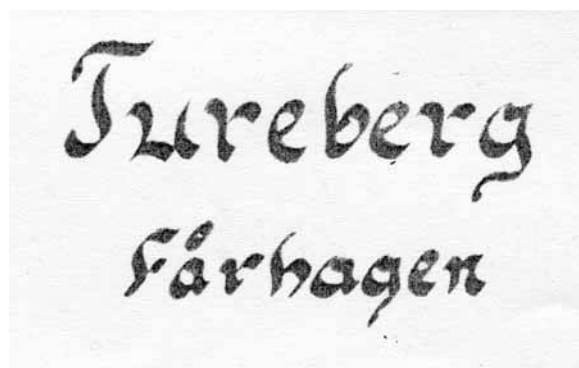 Tureberg
Fårhagen